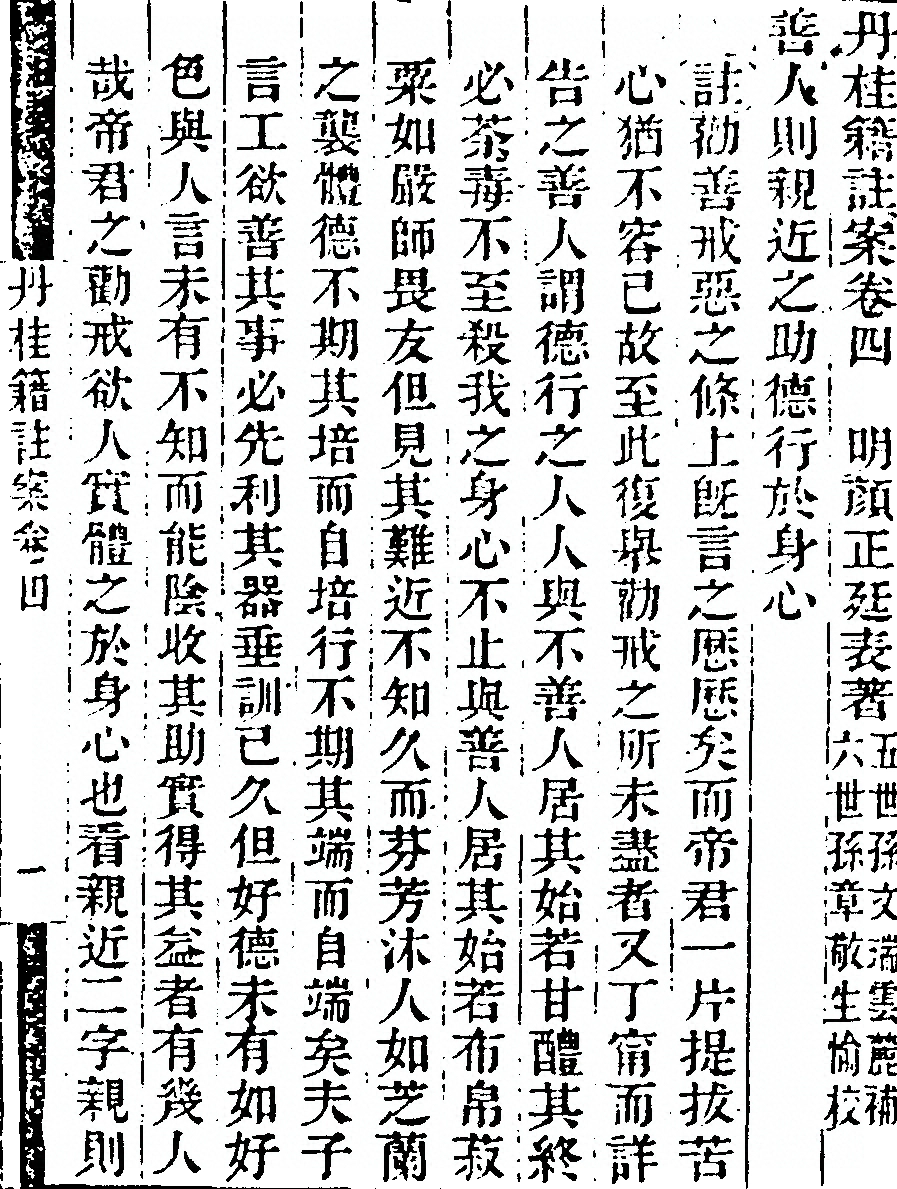 丹桂籍註案卷四　明顏正廷表著五世孫文瑞雲麓補
六世孫章敬生愉校
善人則親近之助德行於身心
註勸善戒惡之條上旣言之歷歷矣而帝君一片提拔苦
心猶不容已故至此復舉勸戒之所未盡者又丁甯而詳
告之善人謂德行之人人與不善人居其始若甘醴其終
必荼毒不至殺我之身心不止與善人居其始若布帛菽
粟如嚴師畏友但見其難近不知久而芬芳沐人如芝蘭
之襲體德不期其培而自培行不期其端而自端矣夫子
言工欲善其事必先利其器垂訓已久但好德未有如好
色與人言未有不知而能陰收其助實得其益者有幾人
哉帝君之勸戒欲人實體之於身心也看親近二字親則
丹桂籍註案卷四　一